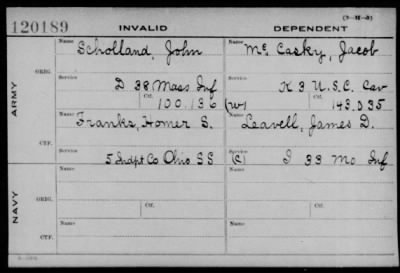 (3-M-8)
120189 INVALID DEPENDENT
Name Name
Scholland, John Mc Casky, Jacob
ORIG. Service Service
D 38 Mass Inf K 3 U.S.C. Cav
Ctf. Ctf.
100.136 (W) 143.035
ARMY
Name Name
Franks, Homer S. Leavell, James D.
CTF. Service Service
5 Indpt Co Ohio SS (C) I 33 Mo Inf
Name Name
NAVY
ORIG. Ctf. Ctf.
Name Name
CTF.